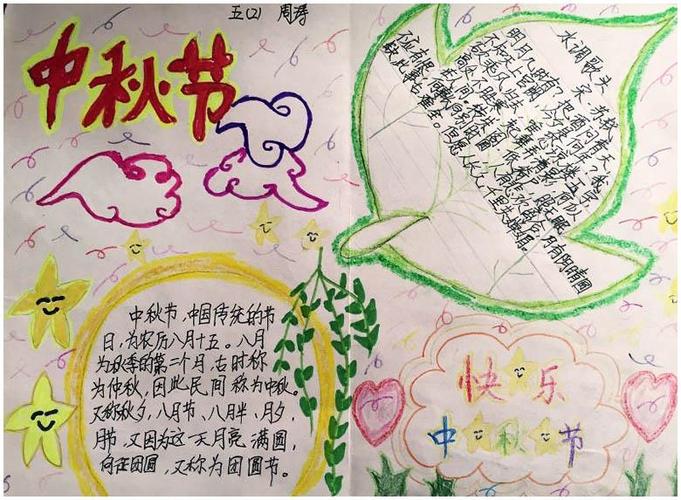 五(2) 周涛
中秋节
水调歌头
宋 苏轼
明月几时有,把酒问青天。
不知天上宫阙,今夕是何年?我欲
乘风归去,又恐琼楼玉宇,
高处不胜寒。起舞弄清影,何似
在人间。转朱阁,低绮户,照无眠。
不应有恨,何事长向别时圆?人有悲欢离合,月有阴晴圆
缺,此事古难全。但愿人长久,千里共婵娟。
中秋节,中国传统的节
日,为农历八月十五。八月
为秋季的第二个月,古时称
为仲秋,因此民间称为中秋。
又称秋夕、八月节、八月半、月夕、
月节,又因为这一天月亮满圆,
向在团圆,又称为团圆节。
快乐
中秋节